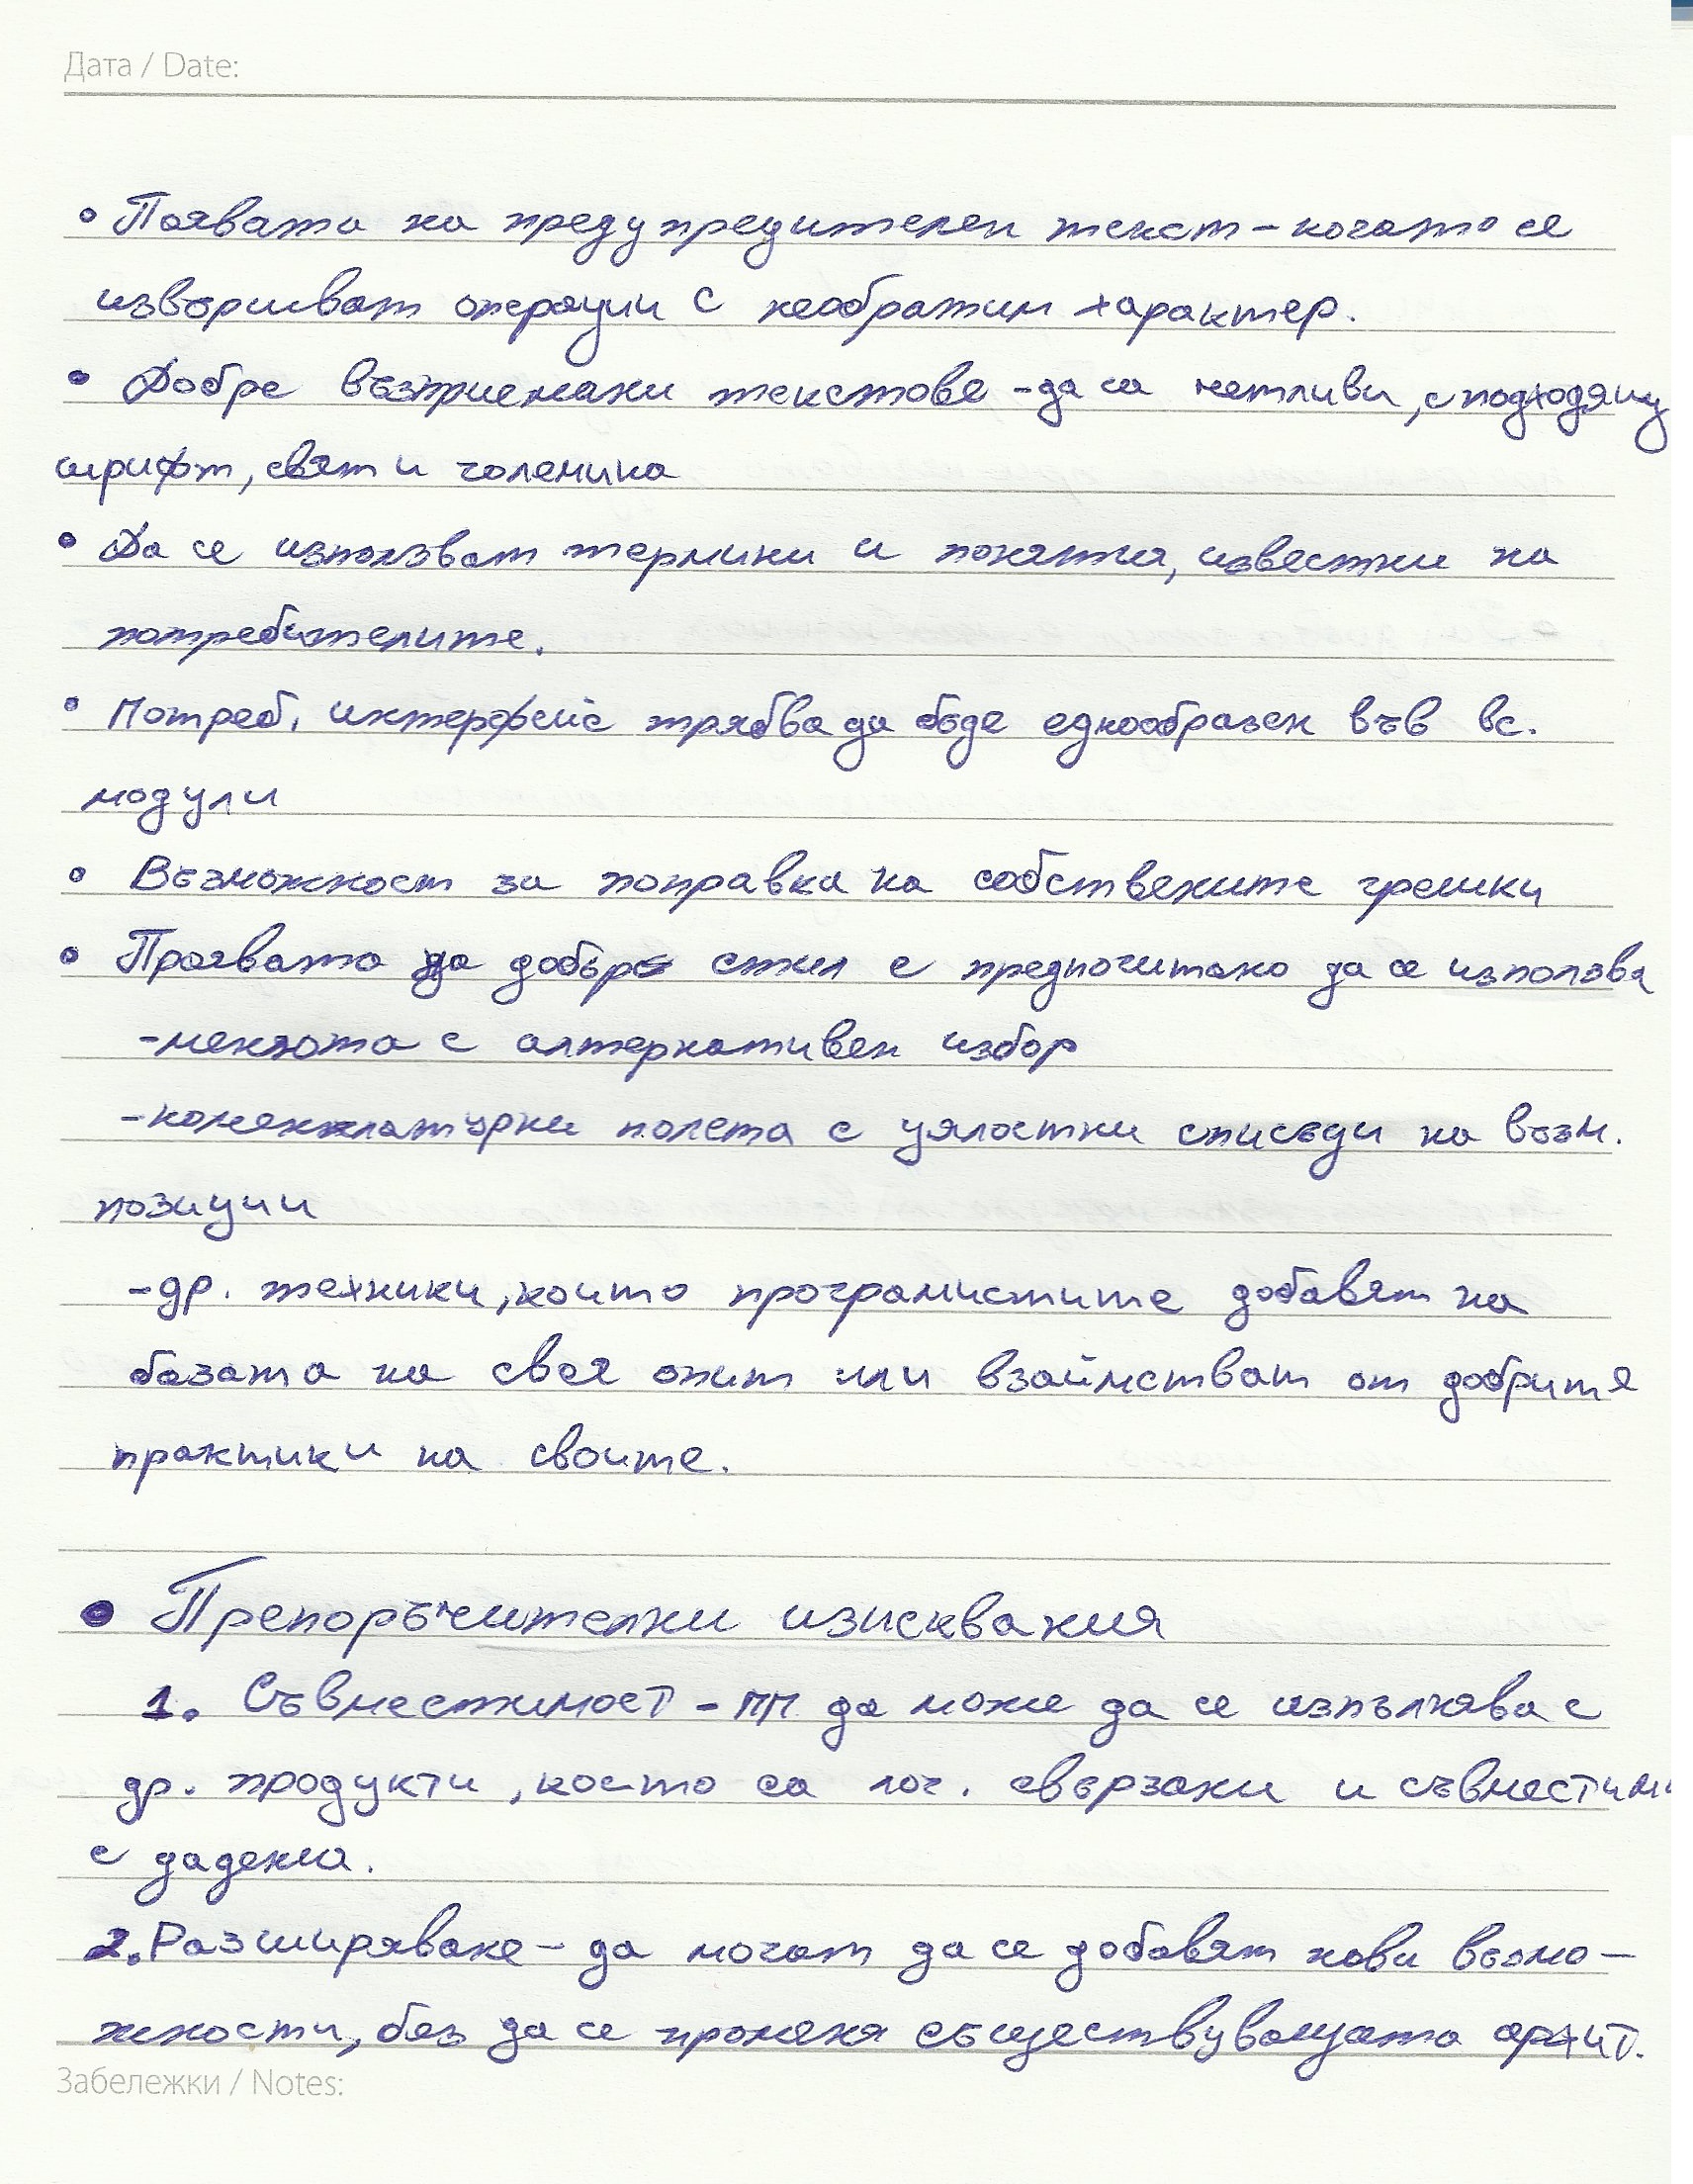 Дата / Date:
• Появата на предупредителен текст - когато се
извършват операции с необратим характер.
• Добре възприемани текстове - да са четливи, с подходящ
шрифт, свят и големина
• Да се използват термини и понятия, известни на
потребителите.
• Потреб. интерфейс трябва да бъде еднообразен във вс.
модули
• Възможност за поправка на собствените грешки
• Проявата на добър стил е предпочитано да се използва
- менюта с алтернативен избор
- номенклатурни полета с цялостни списъци на възм.
позиции
- др. техники, които програмистите добавят на
базата на своя опит или взаимстват от добрите
практики на своите.
• Препоръчителни изисквания
1. Съвместимост - ПП да може да се изпълнява с
др. продукти, които са лог. свързани и съвместими
с дадения.
2. Разширяване - да могат да се добавят нови възмо-
жности, без да се променя съществуващата архит.
Забележки / Notes: